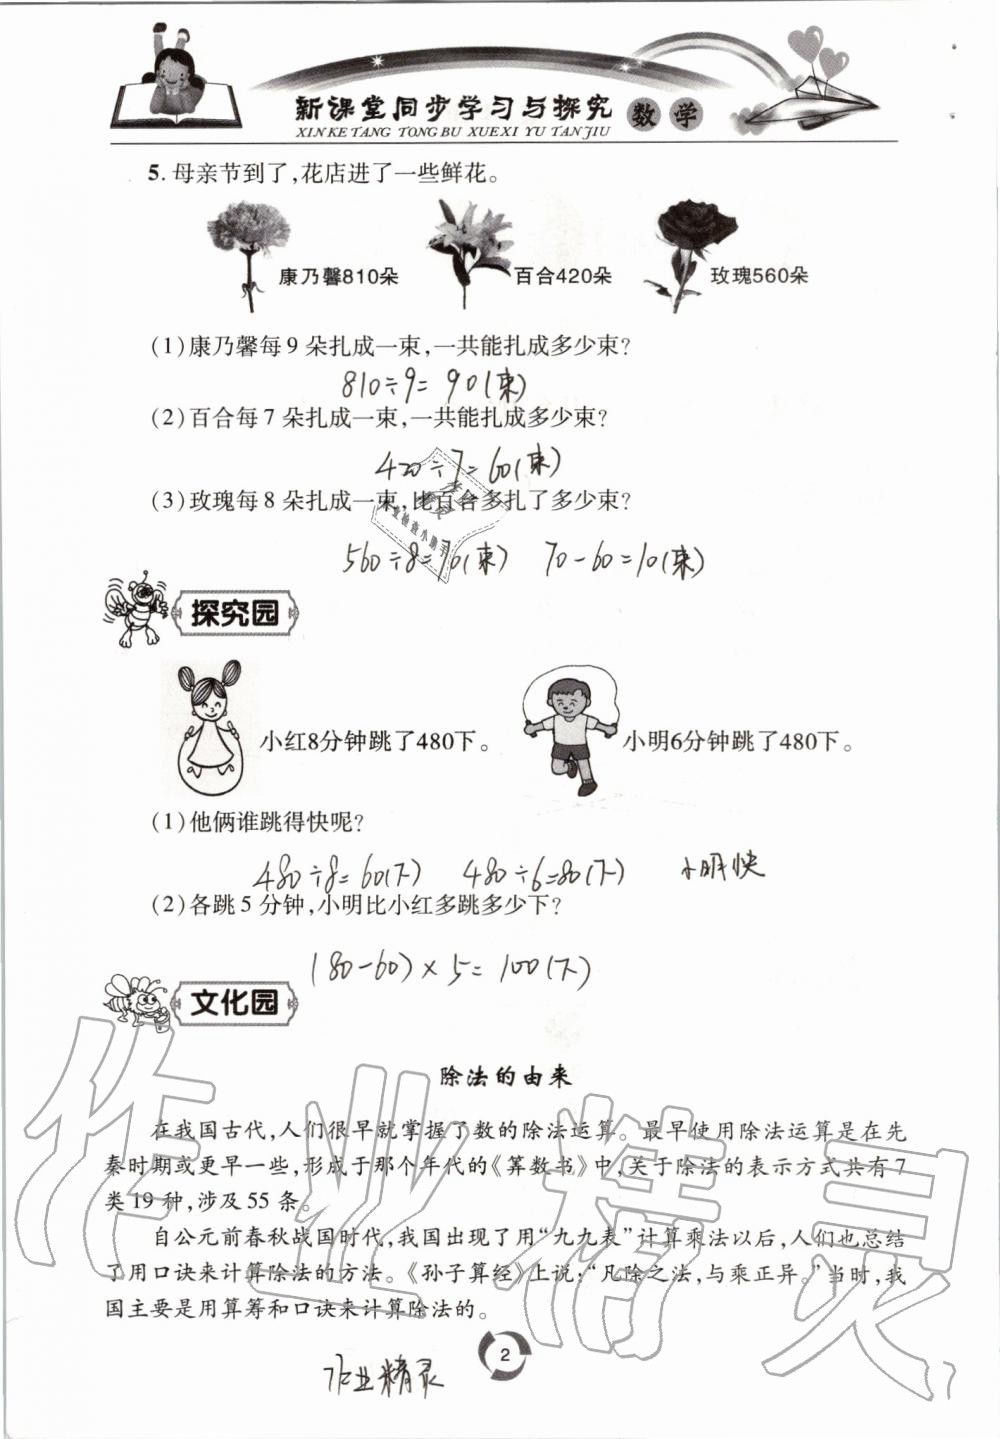 新课堂同步学习与探究 数学
XIN KE TANG TONG BU XUE XI YU TAN JIU
5. 母亲节到了,花店进了一些鲜花。
康乃馨810朵 百合420朵 玫瑰560朵
(1)康乃馨每9朵扎成一束,一共能扎成多少束?
810÷9=90(束)
(2)百合每7朵扎成一束,一共能扎成多少束?
420÷7=60(束)
(3)玫瑰每8朵扎成一束,比百合多扎了多少束?
560÷8=70(束) 70-60=10(束)
探究园
小红8分钟跳了480下。 小明6分钟跳了480下。
(1)他俩谁跳得快呢?
480÷8=60(下) 480÷6=80(下) 小明快
(2)各跳5分钟,小明比小红多跳多少下?
(80-60)×5=100(下)
文化园
除法的由来
在我国古代,人们很早就掌握了数的除法运算。最早使用除法运算是在先
秦时期或更早一些,形成于那个年代的《算数书》中,关于除法的表示方式共有7
类19种,涉及55条。
自公元前春秋战国时代,我国出现了用“九九表”计算乘法以后,人们也总结
了用口诀来计算除法的方法。《孙子算经》上说:“凡除之法,与乘正异。”当时,我
国主要是用算筹和口诀来计算除法的。
2
作业精灵
作业精灵